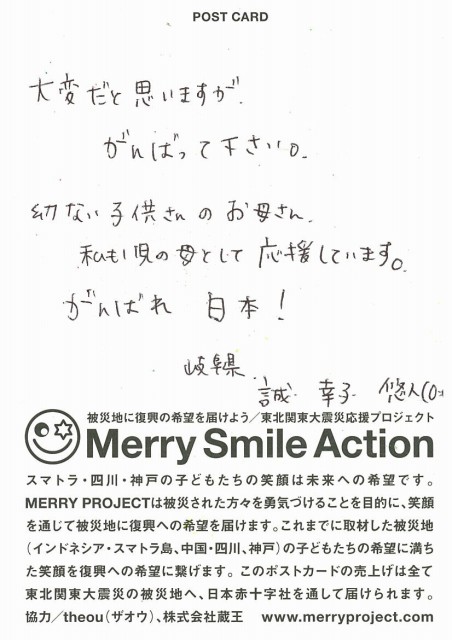 POST CARD
大変だと思いますが、
がんばって下さい。
幼ない子供さんのお母さん、
私も1児の母として応援しています。
がんばれ 日本!
岐阜県
誠 幸子 悠人(0才
被災地に復興の希望を届けよう/東北関東大震災応援プロジェクト
Merry Smile Action
スマトラ・四川・神戸の子どもたちの笑顔は未来への希望です。
MERRY PROJECTは被災された方々を勇気づけることを目的に、笑顔
を通じて被災地に復興への希望を届けます。これまでに取材した被災地
(インドネシア・スマトラ島、中国・四川、神戸)の子どもたちの希望に満ち
た笑顔を復興への希望に繋げます。このポストカードの売上げは全て
東北関東大震災の被災地へ、日本赤十字社を通して届けられます。
協力/theou(ザオウ)、株式会社蔵王 www.merryproject.com